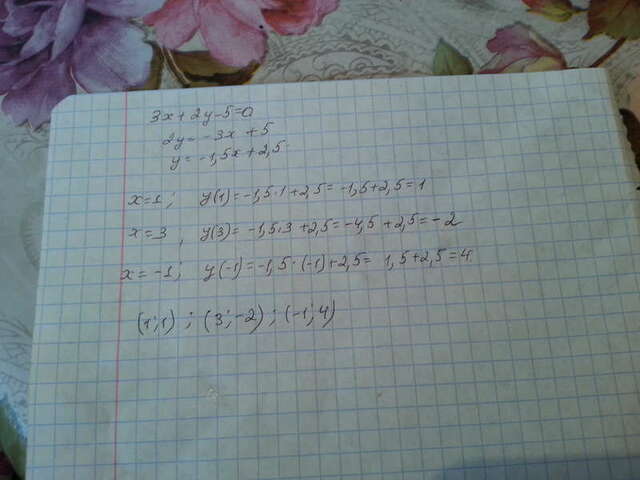 3x + 2y - 5 = 0
2y = -3x + 5
y = -1,5x + 2,5
x = 1; y(1) = -1,5·1 + 2,5 = -1,5 + 2,5 = 1
x = 3, y(3) = -1,5·3 + 2,5 = -4,5 + 2,5 = -2
x = -1; y(-1) = -1,5·(-1) + 2,5 = 1,5 + 2,5 = 4
(1;1) ; (3;-2) ; (-1;4)